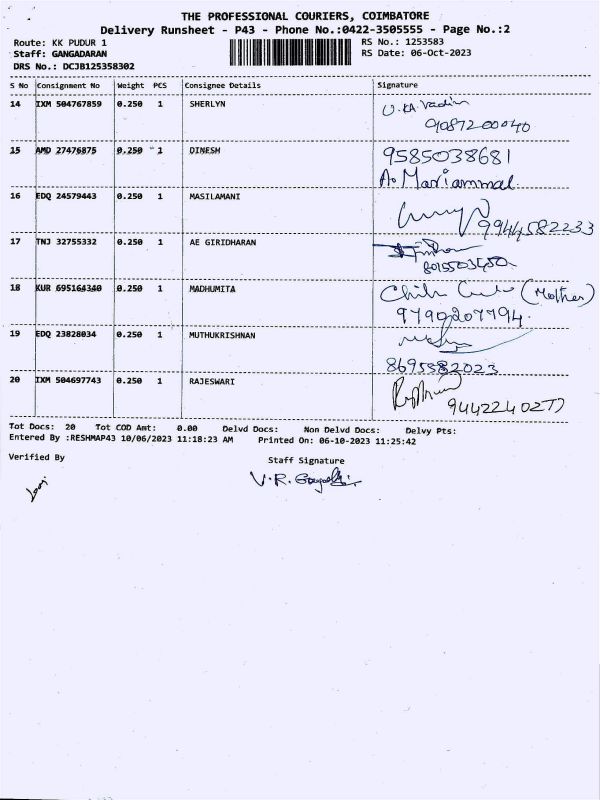 THE PROFESSIONAL COURIERS, COIMBATORE
Delivery Runsheet - P43 - Phone No.:0422-3505555 - Page No.:2
Route: KK PUDUR 1 RS No.: 1253583
Staff: GANGADARAN RS Date: 06-Oct-2023
DRS No.: DCJB125358302
S No Consignment No Weight PCS Consignee Details Signature
14 IXM 504767859 0.250 1 SHERLYN
9087200040
15 AMD 27476875 0.250 1 DINESH 9585038681
A. Mariammal.
16 EDQ 24579443 0.250 1 MASILAMANI
9944582233
17 TNJ 32755332 0.250 1 AE GIRIDHARAN
18 KUR 695164340 0.250 1 MADHUMITA (Mother)
9790207794.
19 EDQ 23828034 0.250 1 MUTHUKRISHNAN
8695582023
20 IXM 504697743 0.250 1 RAJESWARI
9442240277
Tot Docs: 20 Tot COD Amt: 0.00 Delvd Docs: Non Delvd Docs: Delvy Pts:
Entered By :RESHMAP43 10/06/2023 11:18:23 AM Printed On: 06-10-2023 11:25:42
Verified By Staff Signature
V.R.